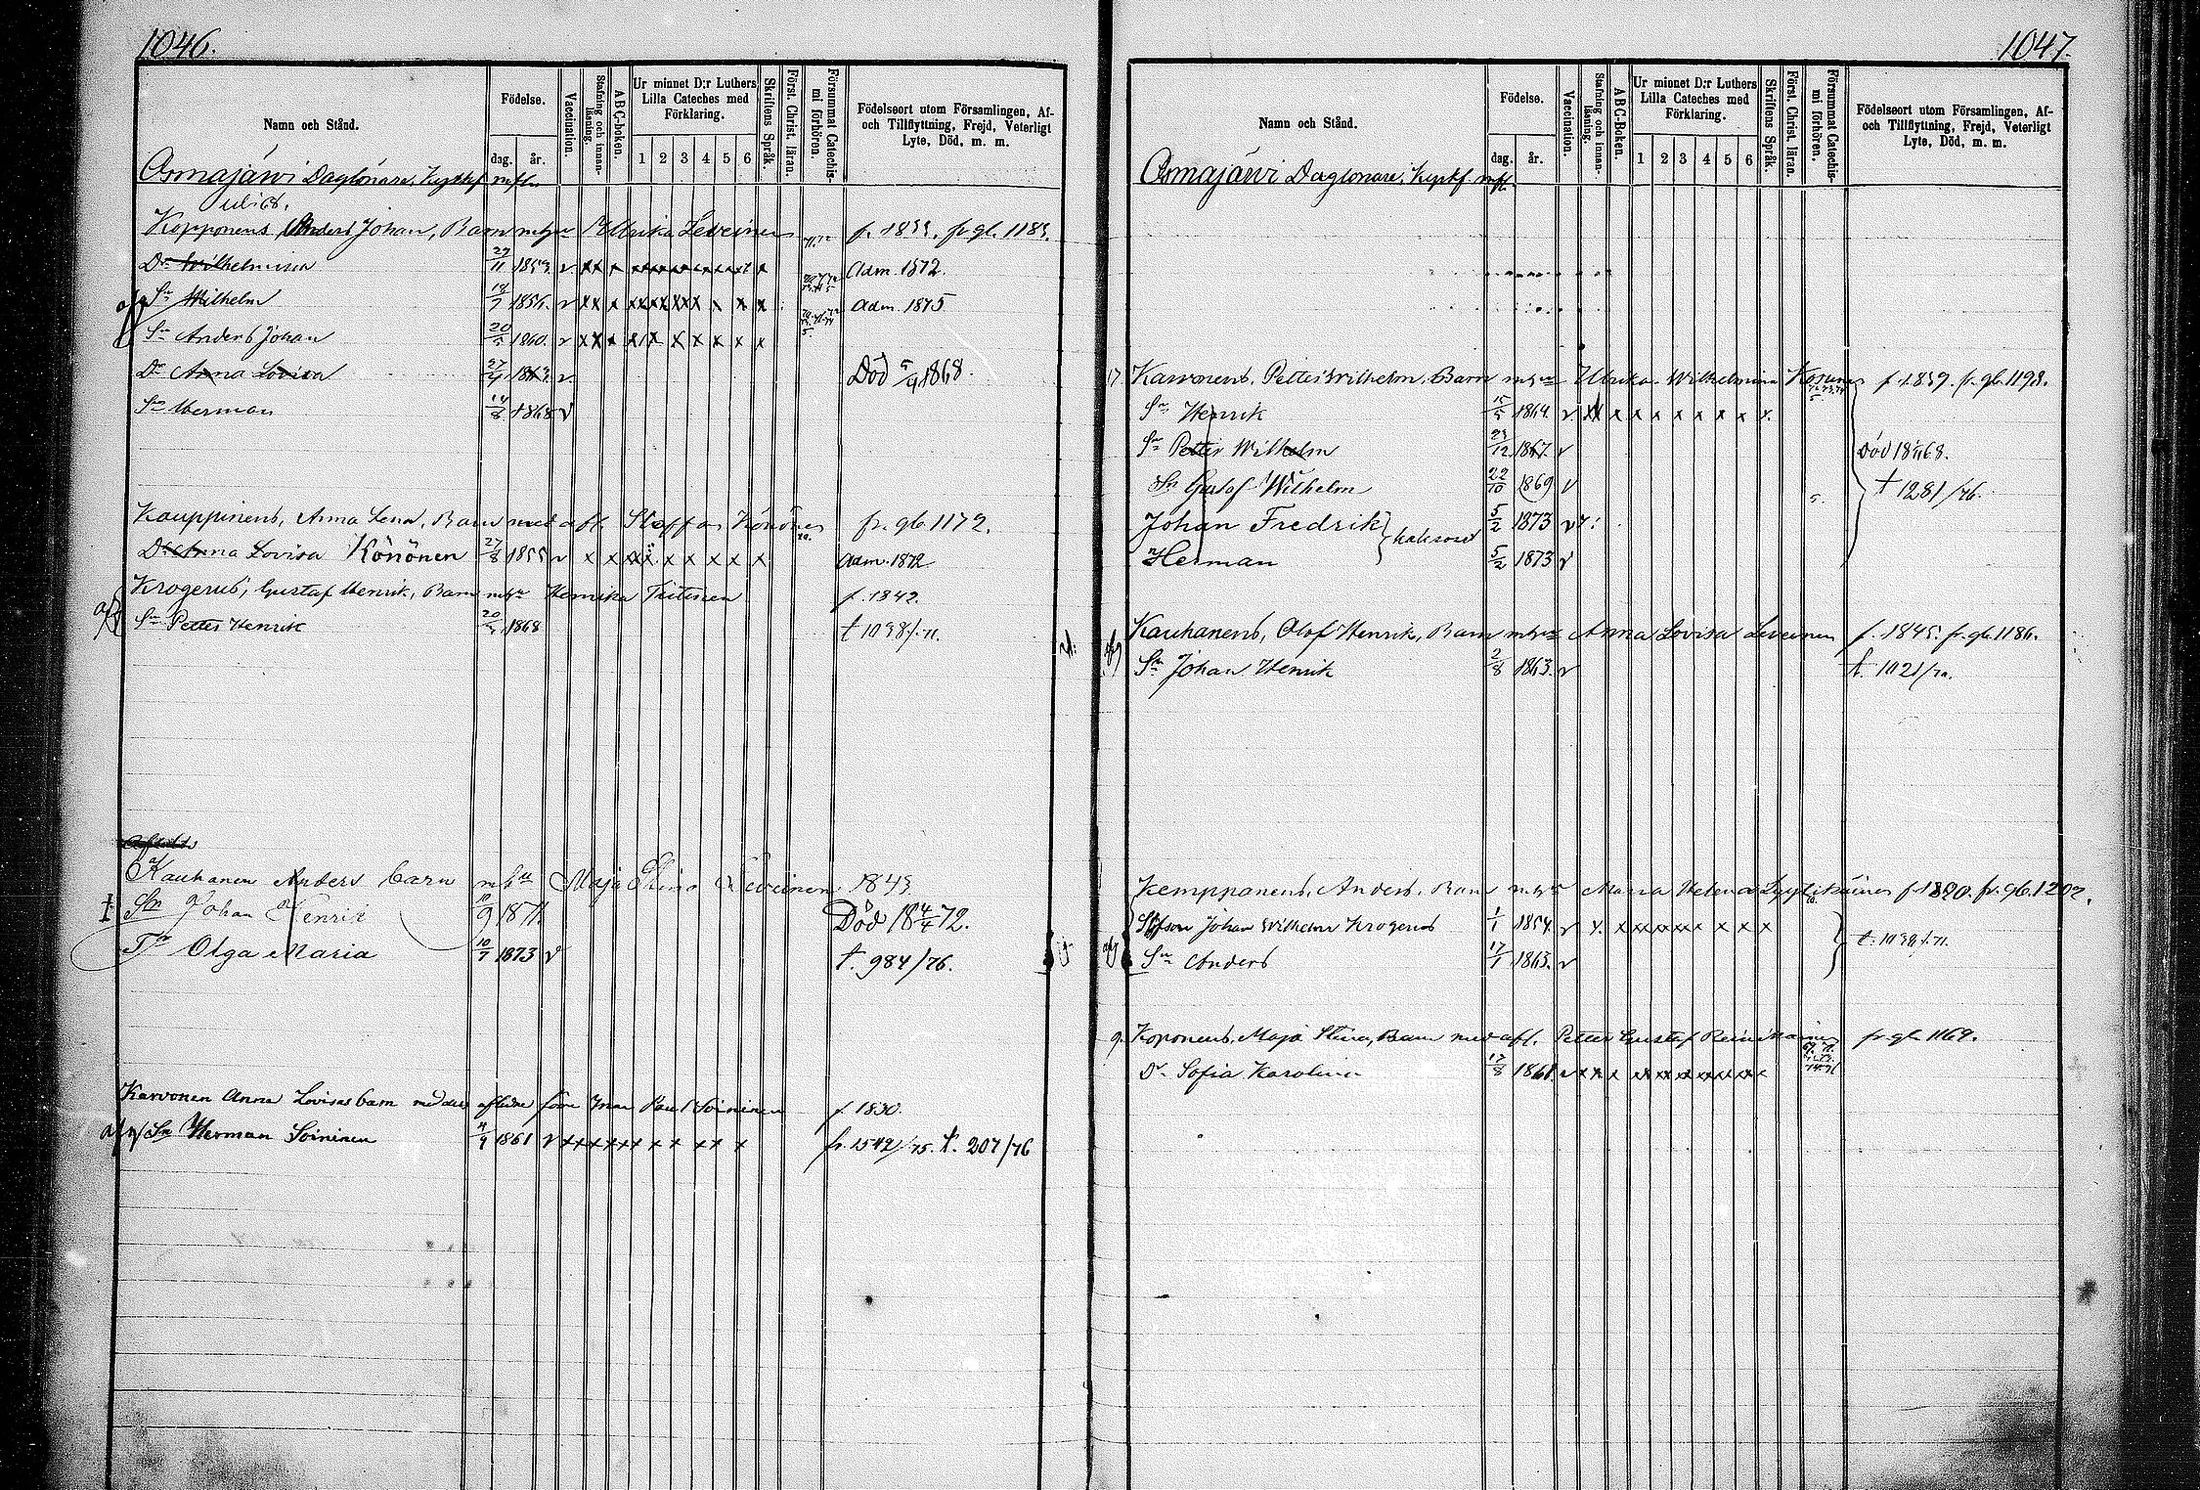 1046.
Namn och Stånd.
Födelse.
dag. år.
Vaccination.
Stafning och innanläsning.
ABC-boken.
Ur minnet D:r Luthers Lilla Cateches med Förklaring.
1 2 3 4 5 6
Skriftens Språk.
Först. Christ. läran.
Försummat Catechismi förhören.
Födelseort utom Församlingen, Af- och Tillflyttning, Frejd, Veterligt Lyte, Död, m. m.
Asmajärvi Daglönare, Kyrkf mfl.
Kopponens, Anders Johan, Barn mhu Ulrika Leveinen f. 1833. fr. gb. 1183.
Dr Wilhelmina 1853. v x x x Adm. 1872.
Sn Wilhelm 18/7 1856. v x x x Adm. 1875
Sn Anders Johan 20 1860. v x x x
Dr Anna Lovisa 27 1863. v Död 5/9 1868.
Sn Herman 14/8 1868 v
Kauppinens, Anna Lena, Barn med afl. Staffan Könönen fr. gb. 1172.
Dr Anna Lovisa Könönen 27/8 1855 v x x x Adm. 1872
Krogerus, Gustaf Henrik, Barn mhu Henrika Tiitinen f. 1842.
Sn Petter Henrik 20 1868 t 1038/71.
Kauhanen Anders barn mhu Maja Stina Leveinen 1843
Sn Johan Henrik 10/9 1871. Död 18 4/4 72.
Tr Olga Maria 10/7 1873 v t. 984/76.
Karvonen Anna Lovisas barn med dess aflidne förre man Paul Soininen f. 1830.
Sn Herman Soininen 1861 v x x x fr. 1542/75. t. 207/76
1047.
Namn och Stånd.
Födelse.
dag. år.
Vaccination.
Stafning och innanläsning.
ABC-Boken.
Ur minnet D:r Luthers Lilla Cateches med Förklaring.
1 2 3 4 5 6
Skriftens Språk.
Först. Christ. läran.
Försummat Catechismi förhören.
Födelseort utom Församlingen, Af- och Tillflyttning, Frejd, Veterligt Lyte, Död, m. m.
Asmajärvi Daglönare, Kyrkf mfl.
17. Karvonens, Petter Wilhelm, Barn mhu Ulrika Wilhelmina f. 1839. fr. gb. 1193.
Sn Henrik 15/5 1864. v x x x
Sn Petter Wilhelm 23/12 1867. v Död 18 68.
Sn Gustaf Wilhelm 22/10 1869 v t 1281/76.
Johan Fredrik 5/2 1873 v
Herman 5/2 1873 v
Kauhanens, Olof Henrik, Barn mhu Anna Lovisa Leveinen f. 1845. fr. gb. 1186.
Sn Johan Henrik 2/8 1863. v t. 1021/
Kemppanens, Anders, Barn mhu Maria Helena Lyytikäinen fr. gb. 1202.
Stfson Johan Wilhelm Krogerus 1/1 1854. v x x x t. 1038/71.
Sn Anders 17/1 1863. v
9. Koponens, Maja Stina, Barn med afl. Petter Gustaf Reinikainen fr. gb. 1169.
Dr Sofia Karolina 17/8 1861. v x x x